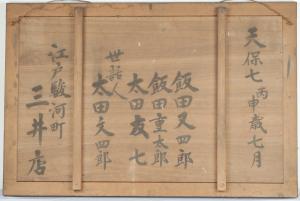 天保七丙申歳七月
飯田又四郎
飯田重太郎
太田友七
世話人
太田文四郎
江戸駿河町
三井店